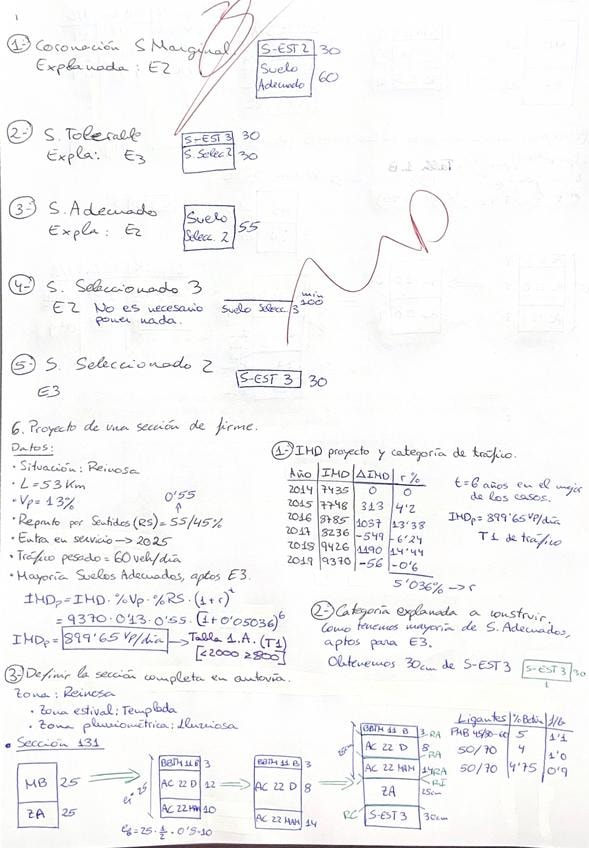 1-) Coronación S Marginal
Explanada: E2
S-EST 2 30
Suelo Adecuado 60
2-) S. Tolerable
Expla: E3
S-EST 3 30
S. Selec 2 30
3-) S. Adecuado
Expla: E2
Suelo Selecc. 2 55
4-) S. Seleccionado 3
E2 No es necesario
poner nada.
Suelo Selecc. 3 min 100
5-) S. Seleccionado 2
E3
S-EST 3 30
6. Proyecto de una sección de firme.
Datos:
• Situación: Reinosa
• L = 53 Km
• Vp = 13%
0'55
• Reparto por Sentidos (RS) = 55/45%
• Entra en servicio → 2025
• Tráfico pesado = 60 veh/día
• Mayoría Suelos Adecuados, aptos E3.
IMDp = IMD · %Vp · %RS · (1+r)^t
= 9370 · 0'13 · 0'55 · (1+0'05036)^6
IMDp = 899'65 VP/día → Tabla 1.A. (T1)
[<2000 ≥800]
1-) IMD proyecto y categoría de tráfico.
Año IMD ΔIMD r%
2014 7435 0 0
2015 7748 313 4'2
2016 8785 1037 13'38
2017 8236 -549 -6'24
2018 9426 1190 14'44
2019 9370 -56 -0'6
5'036% → r
t = 6 años en el mejor
de los casos.
IMDp = 899'65 VP/día
T1 de tráfico
2-) Categoría explanada a construir.
Como tenemos mayoría de S. Adecuados,
aptos para E3.
Obtenemos 30cm de S-EST 3
S-EST 3 30
3-) Definir la sección completa en autovía.
Zona: Reinosa
• Zona estival: Templada
• Zona pluviométrica: Lluviosa
• Sección 131
MB 25
ZA 25
BBTM 11 B 3
AC 22 D 12
AC 22 MAM 10
25
BBTM 11 B. 3
AC 22 D 8
AC 22 MAM 14
BBTM 11 B 3 RA
AC 22 D 8 RA
AC 22 MAM 14 RA
RI
ZA 25cm
RC S-EST 3 30cm
Ligantes %Betún f/b
PMB 45/80-60 5 1'1
50/70 4 1'0
50/70 4'75 0'9